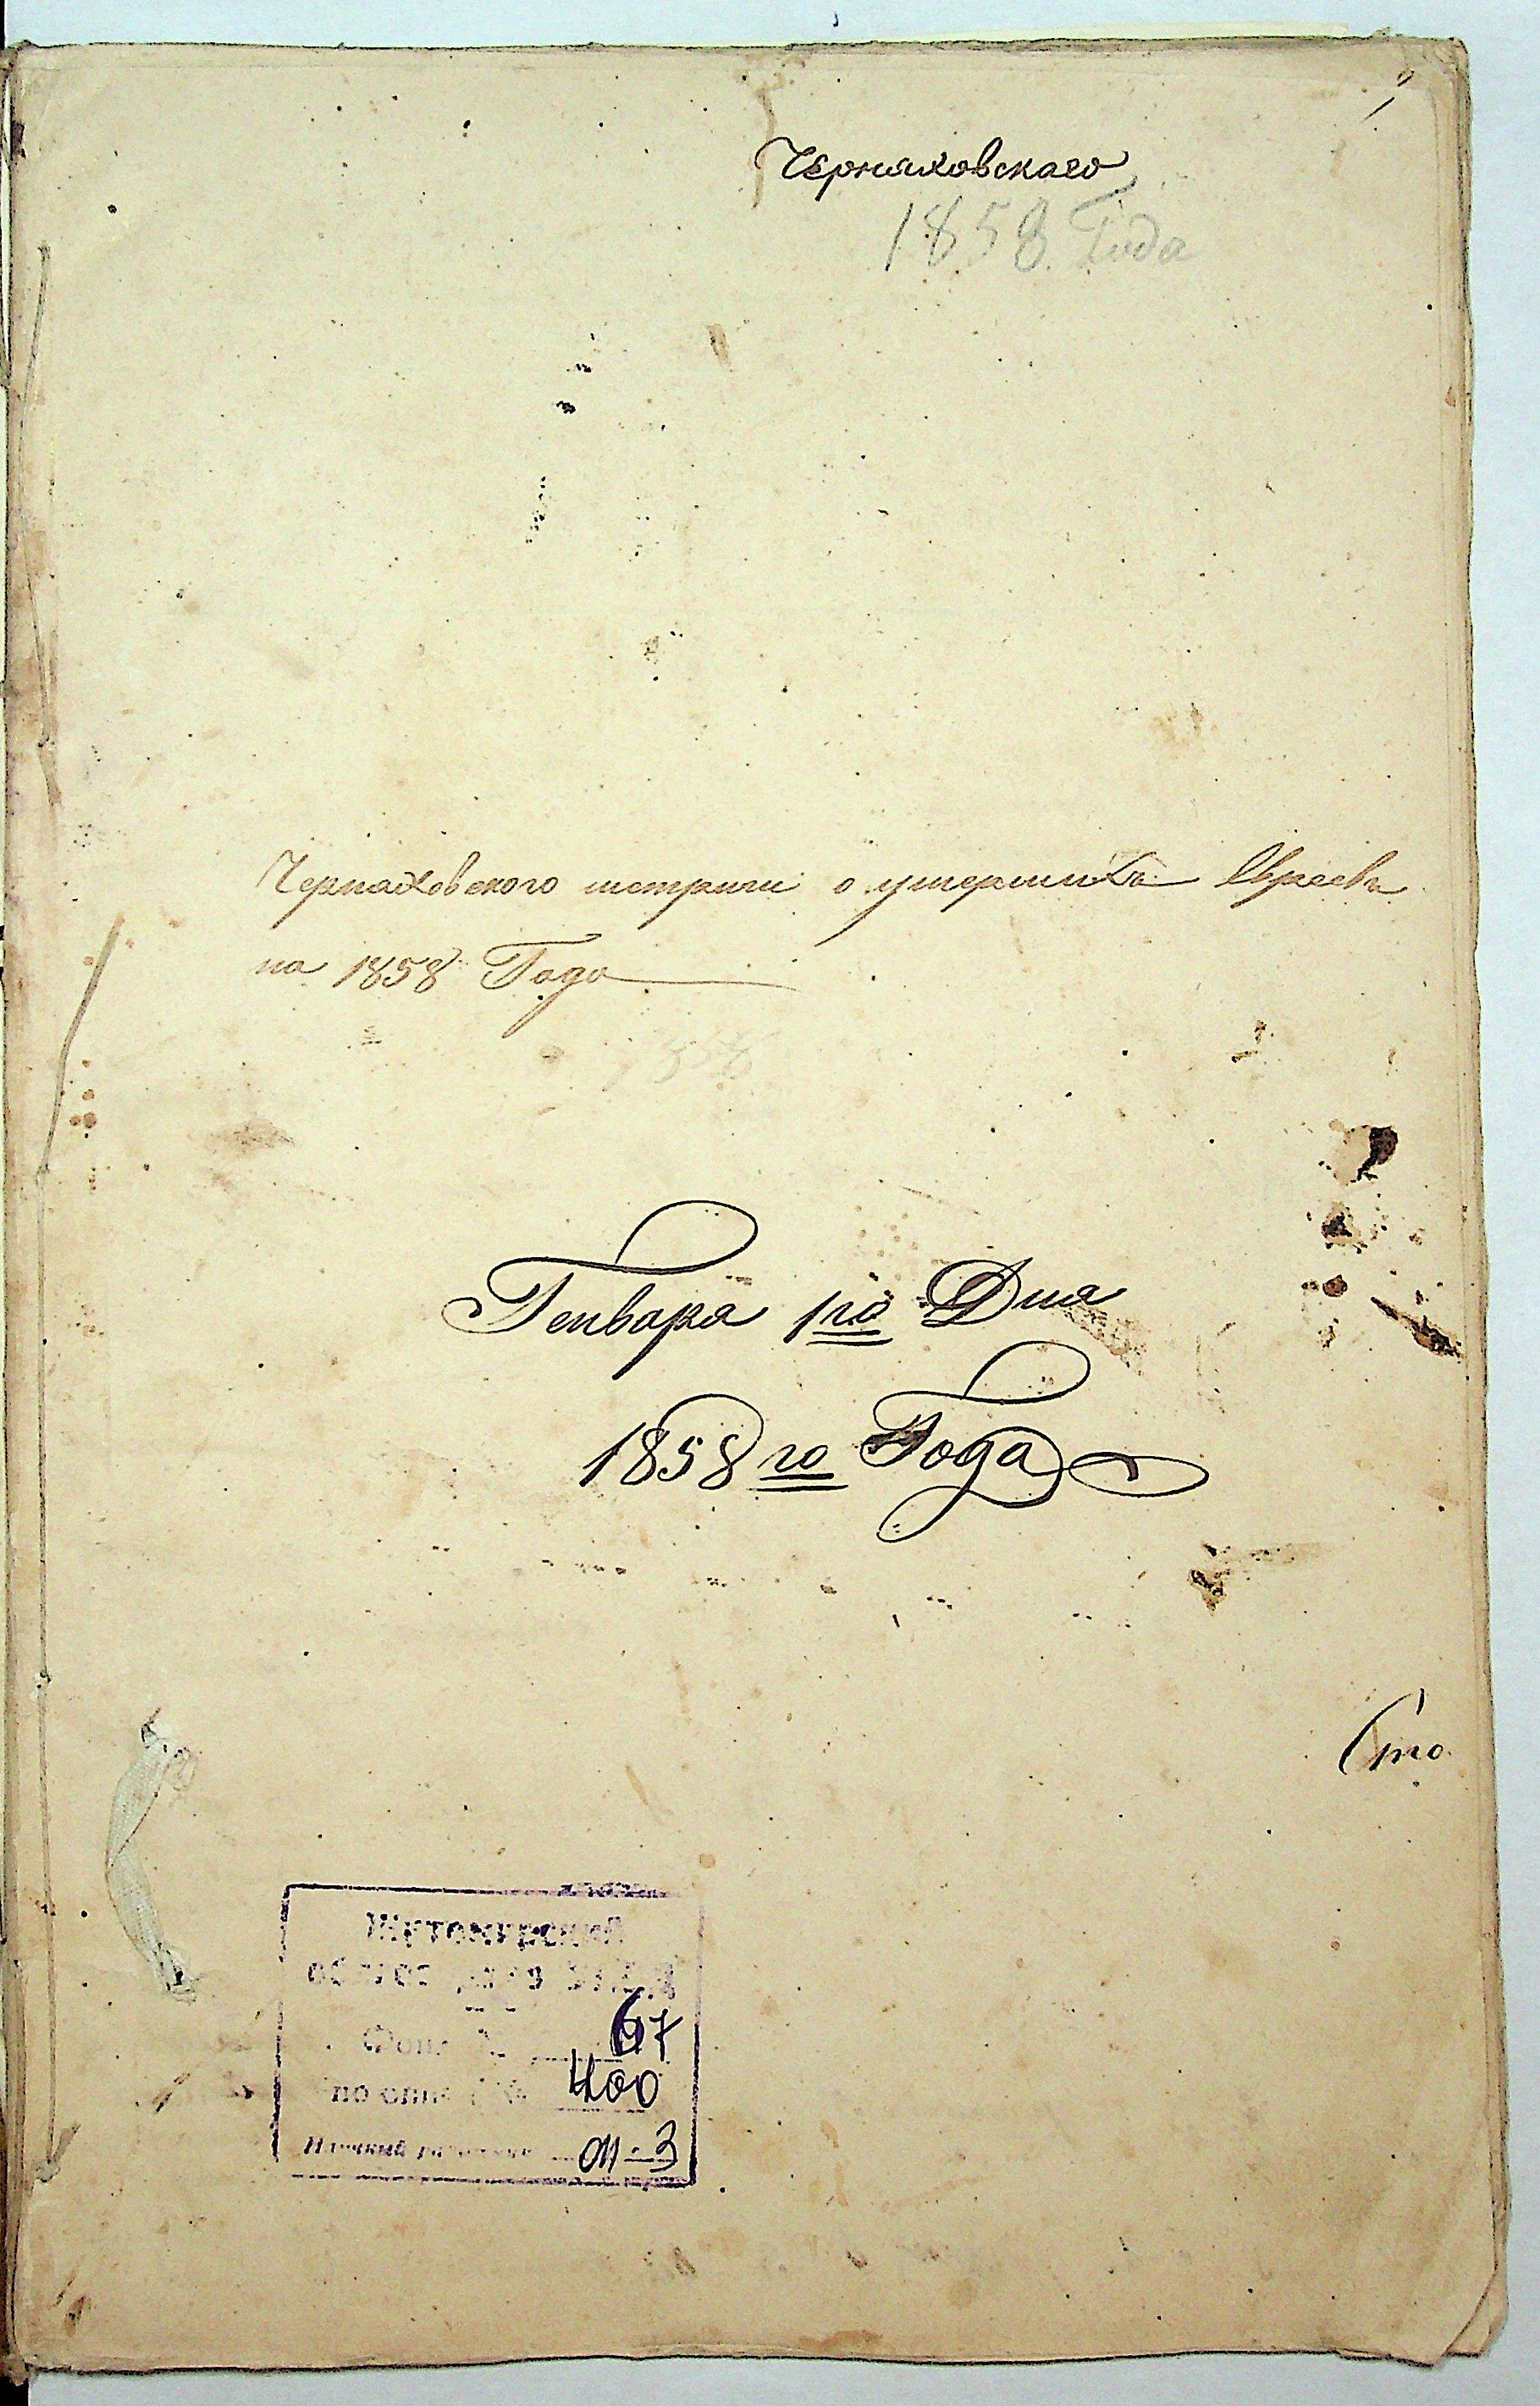 1
Черняховскаго
1858 Года
Черняховского метрики о умерших Евреев
на 1858 Года
Генваря 1го Дня
1858го Года
Сто
Житомирский
Фонд № 67
по описи № 400
оп-3